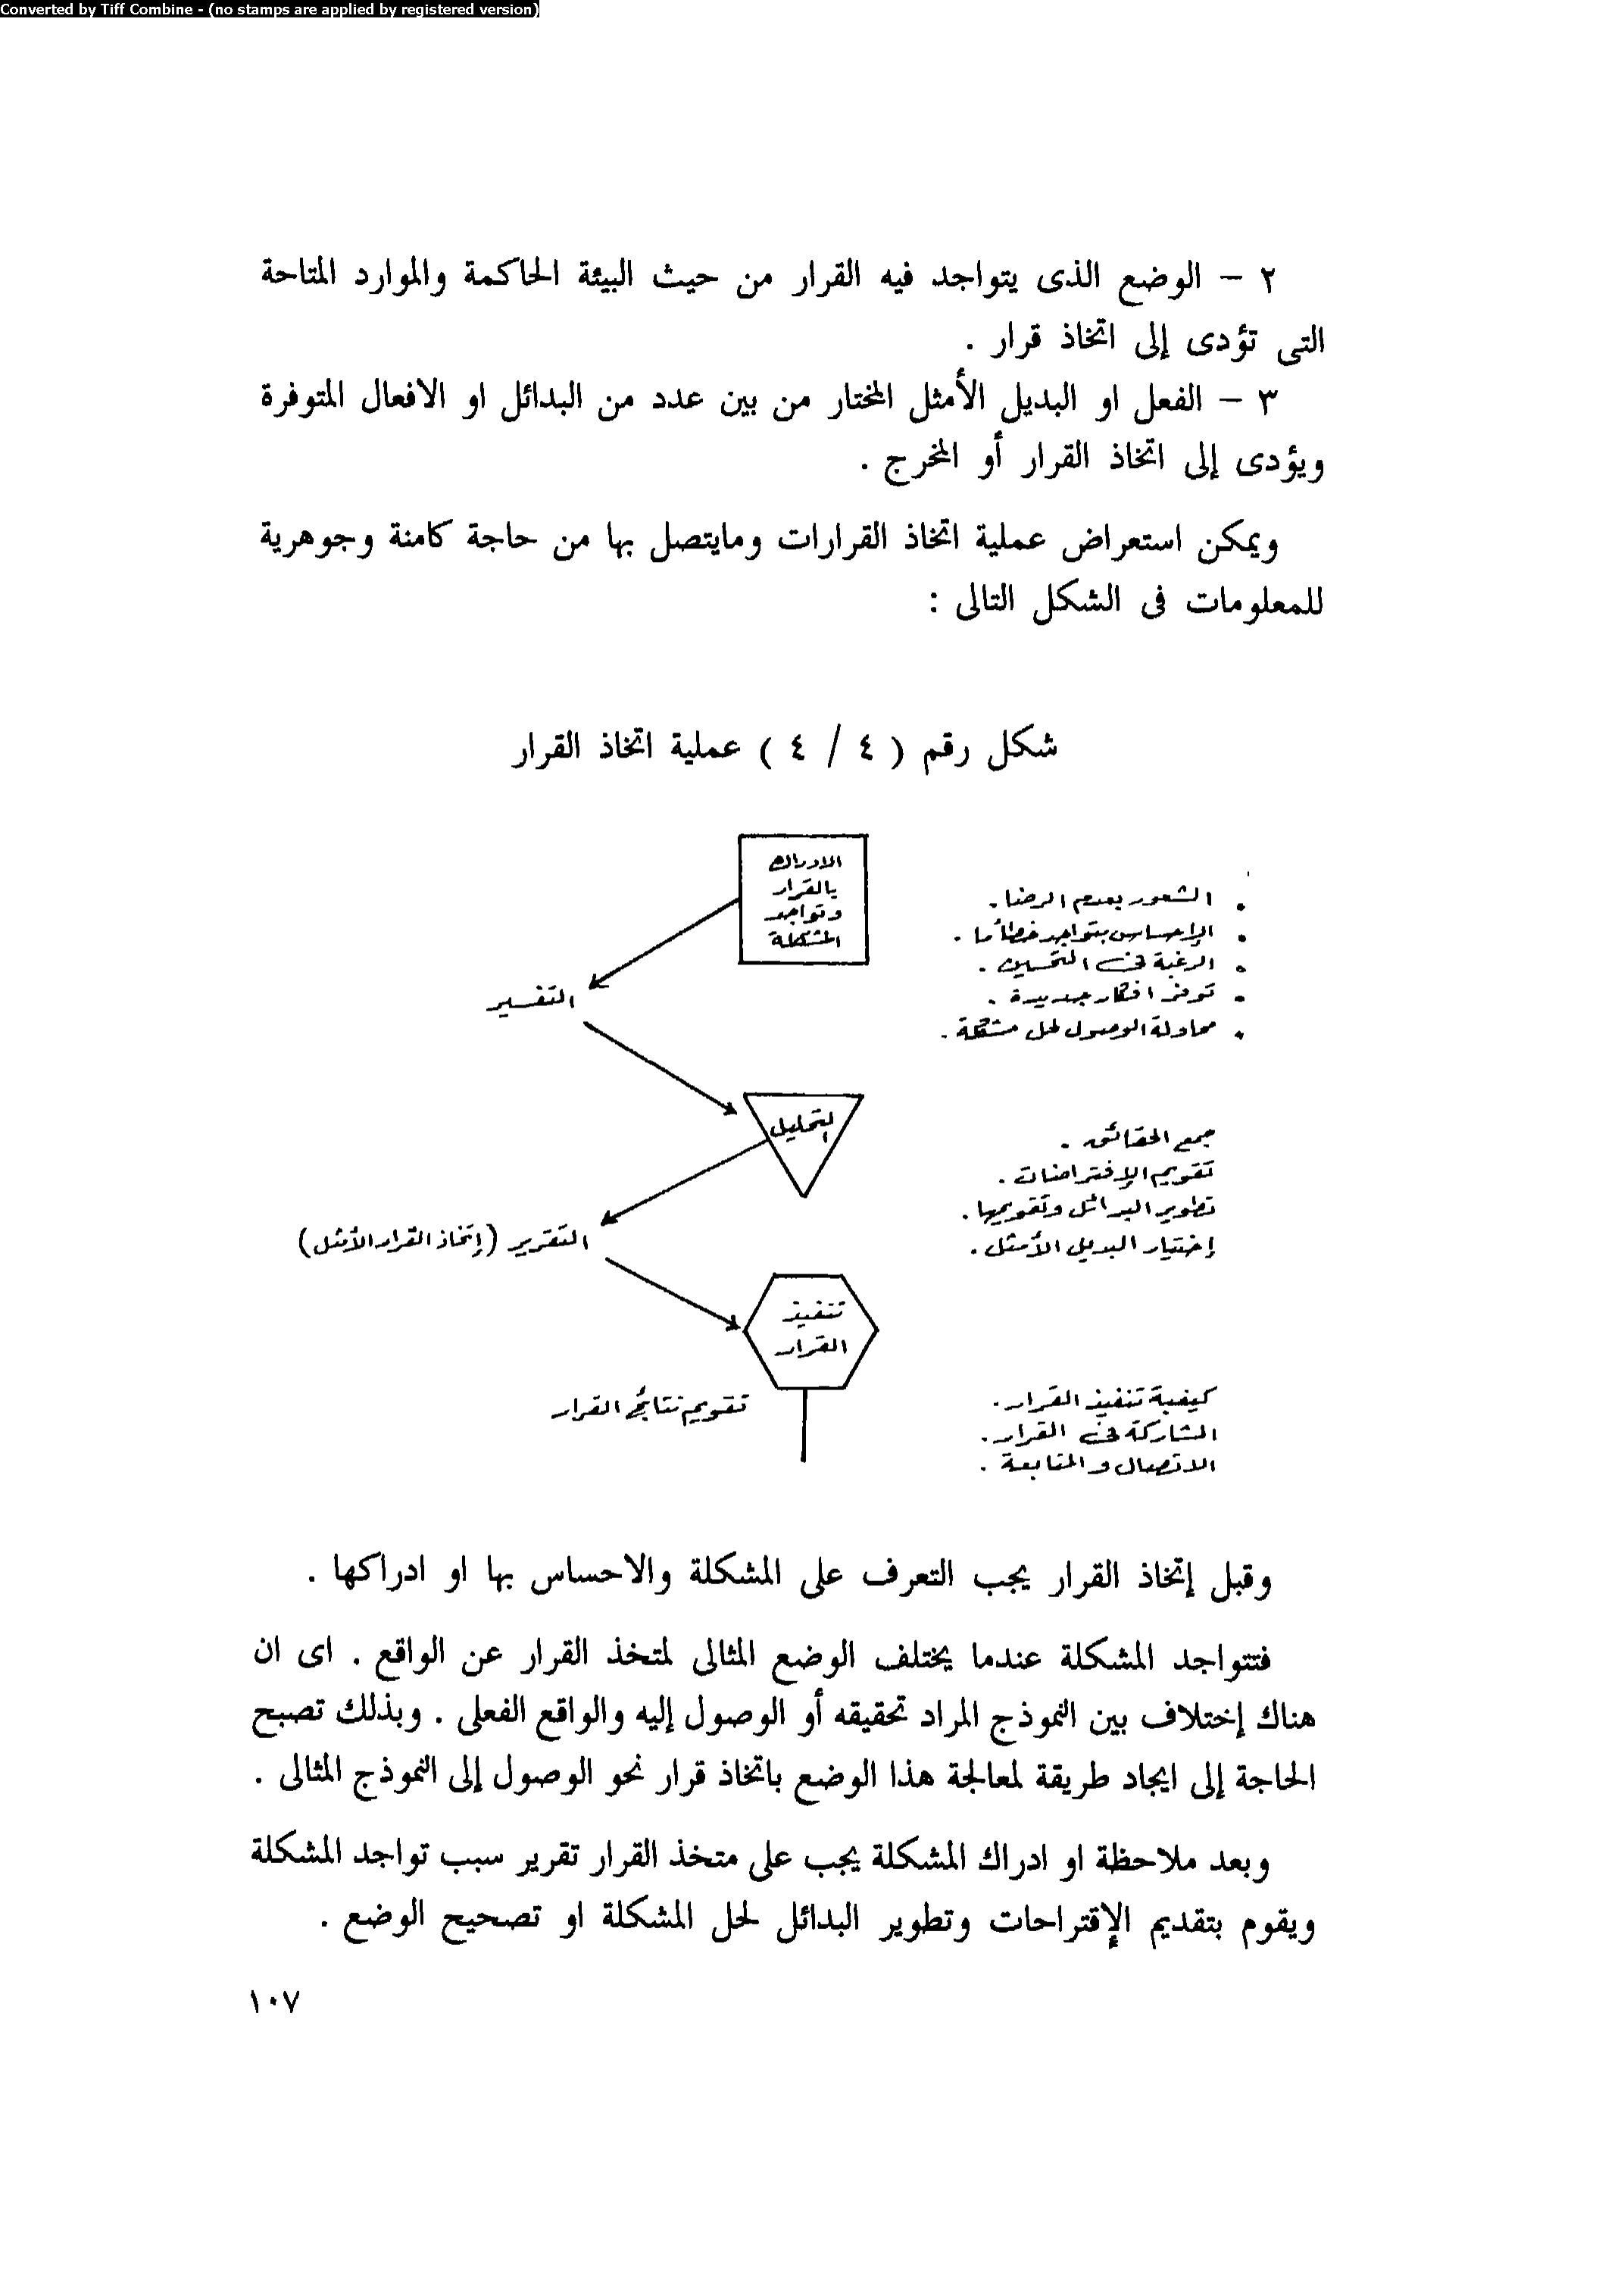 Converted by Tiff Combine - (no stamps are applied by registered version)
٢ – الوضع الذى يتواجد فيه القرار من حيث البيئة الحاكمة والموارد المتاحة
التى تؤدى إلى اتخاذ قرار .
٣ – الفعل او البديل الأمثل المختار من بين عدد من البدائل او الافعال المتوفرة
ويؤدى إلى اتخاذ القرار أو المخرج .
ويمكن استعراض عملية اتخاذ القرارات ومايتصل بها من حاجة كامنة وجوهرية
للمعلومات فى الشكل التالى :
شكل رقم ( ٤ / ٤ ) عملية اتخاذ القرار
الادراك
بالقرار
وتواجد
المشكلة
• الشعور بعدم الرضا .
• الإحساس بتواجد خطأ ما .
• الرغبة فى التحسين .
• توفر افكار جديدة .
• محاولة الوصول لحل مشكلة .
التفسير
التحليل
جمع الحقائق .
تقويم الإفتراضات .
تطوير البدائل وتقويمها .
إختيار البديل الأمثل .
التقرير (إتخاذ القرار الأمثل)
تنفيذ
القرار
كيفية تنفيذ القرار .
المشاركة فى القرار .
الاتصال والمتابعة .
تقويم نتائج القرار
وقبل إتخاذ القرار يجب التعرف على المشكلة والاحساس بها او ادراكها .
فتتواجد المشكلة عندما يختلف الوضع المثالى لمتخذ القرار عن الواقع . اى ان
هناك إختلاف بين النموذج المراد تحقيقه أو الوصول إليه والواقع الفعلى . وبذلك تصبح
الحاجة إلى ايجاد طريقة لمعالجة هذا الوضع باتخاذ قرار نحو الوصول إلى النموذج المثالى .
وبعد ملاحظة او ادراك المشكلة يجب على متخذ القرار تقرير سبب تواجد المشكلة
ويقوم بتقديم الإقتراحات وتطوير البدائل لحل المشكلة او تصحيح الوضع .
١٠٧